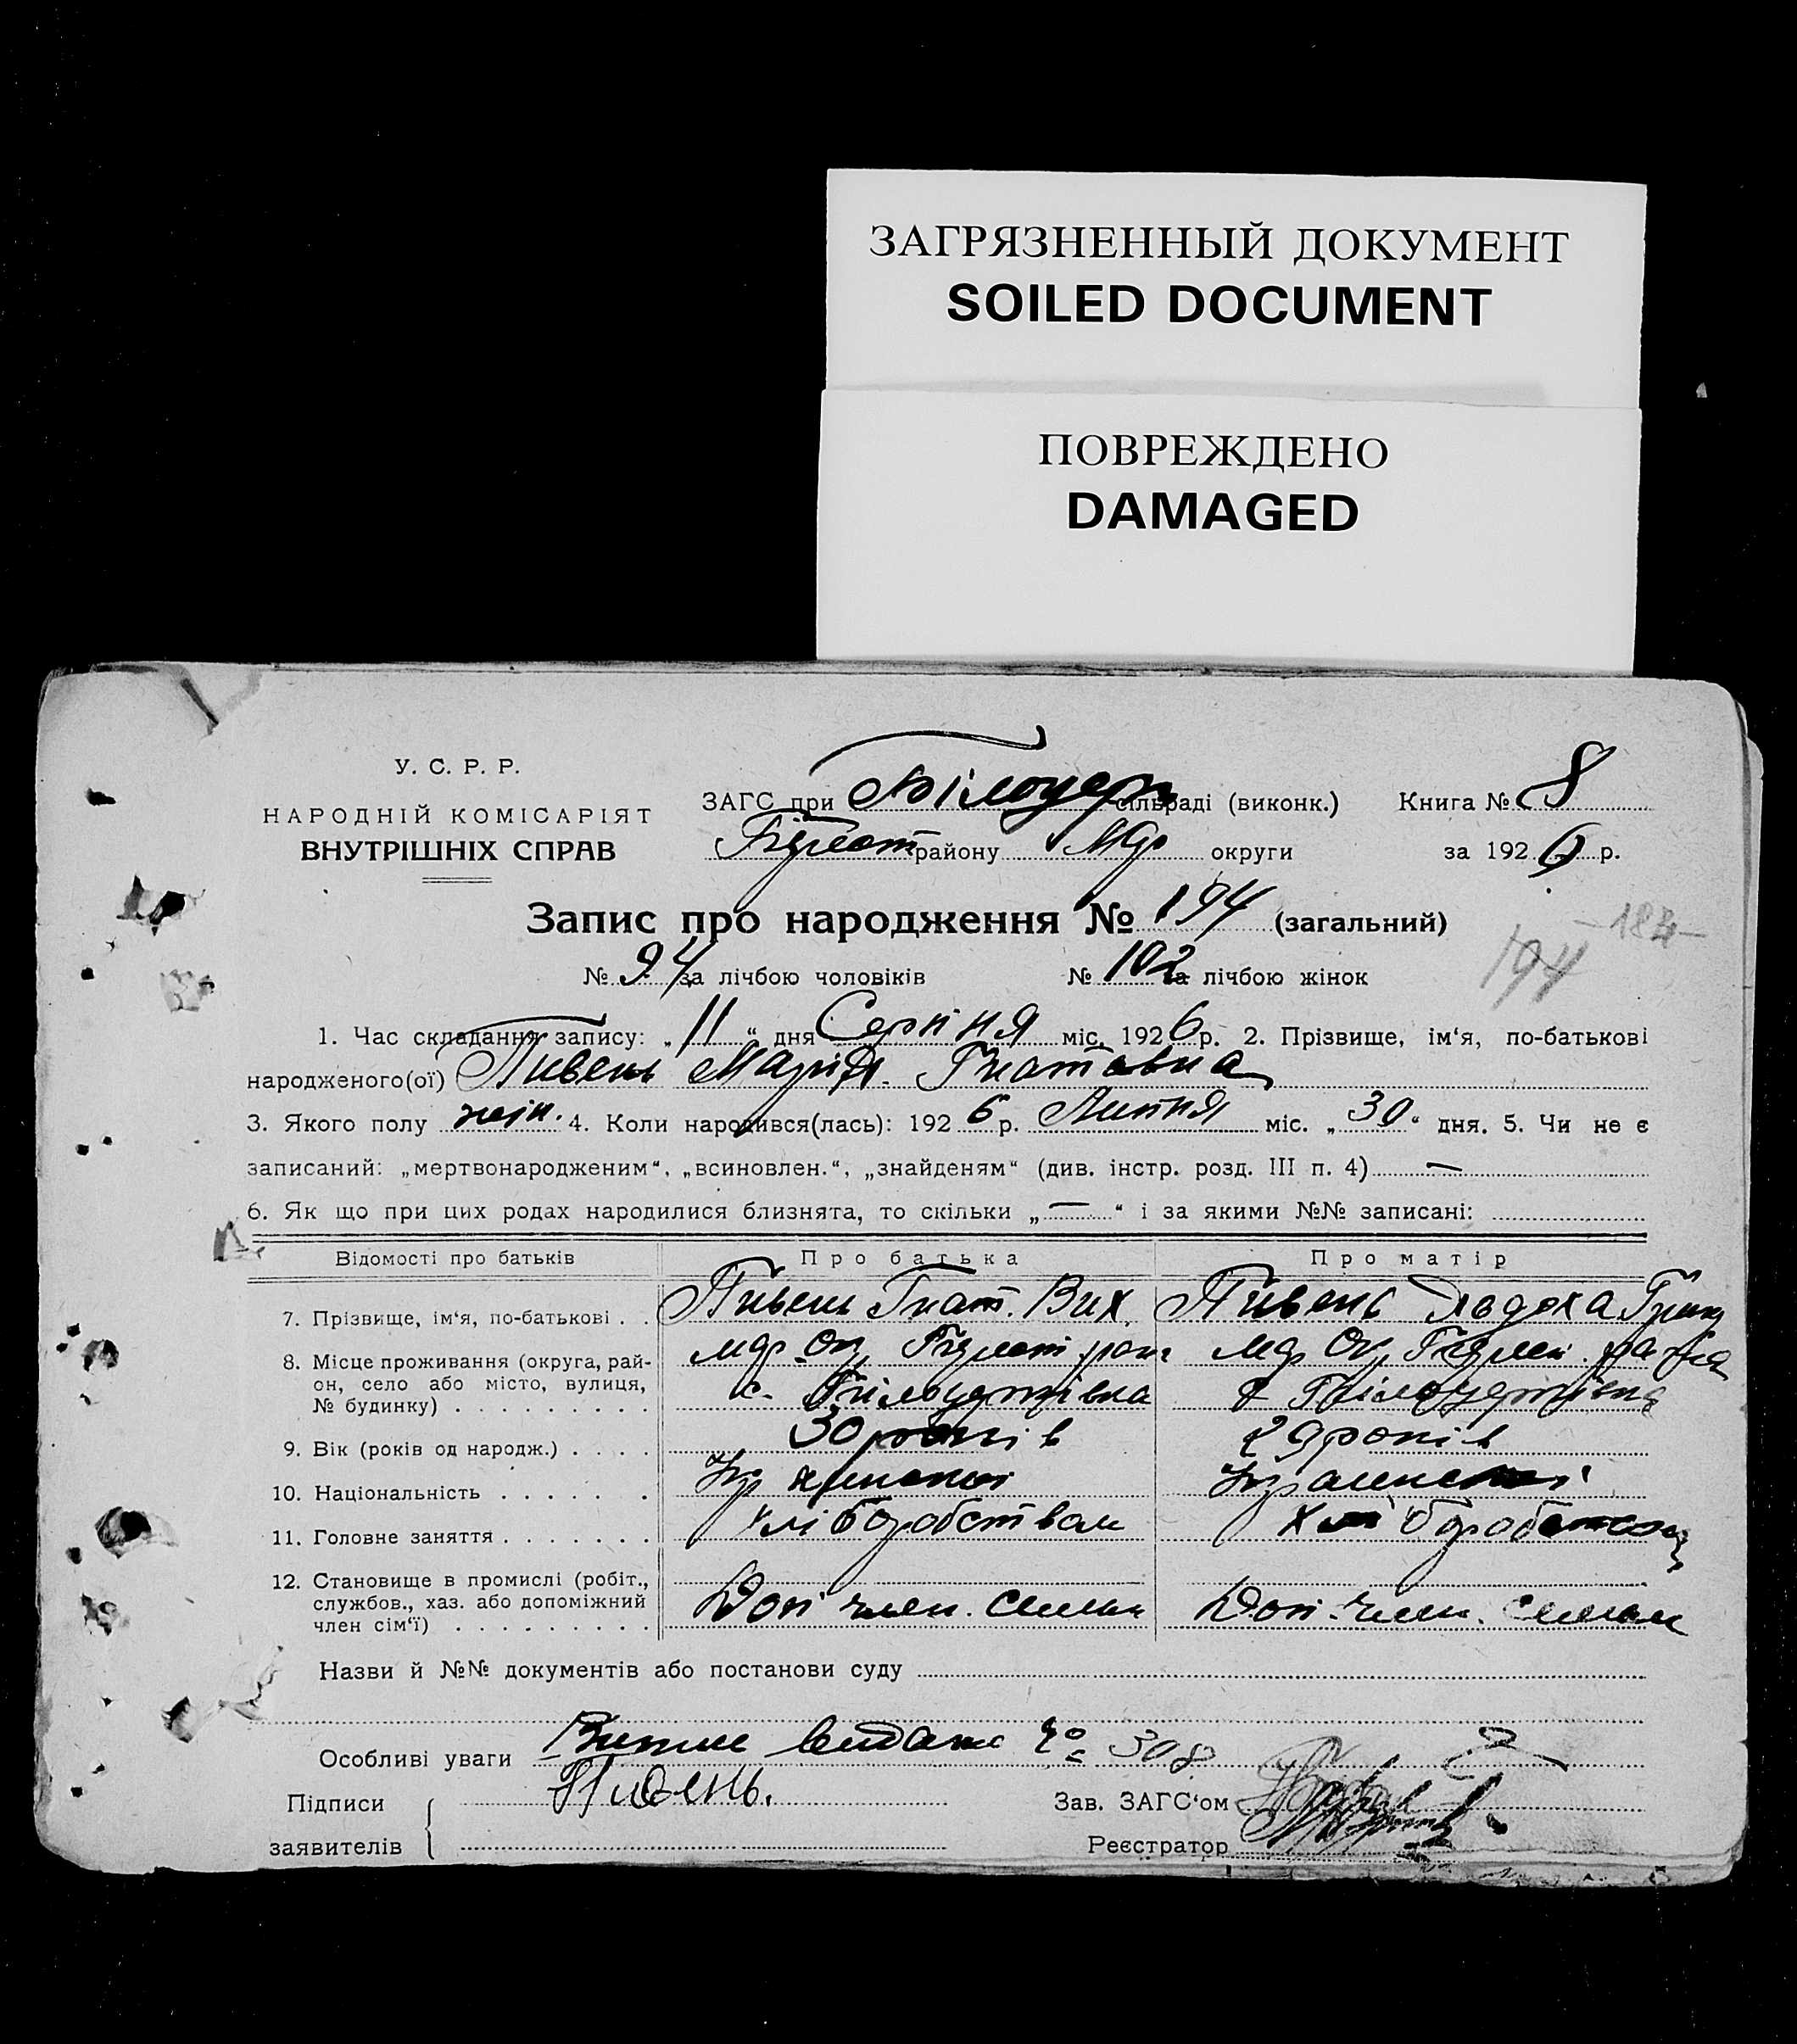 ЗАГРЯЗНЕННЫЙ ДОКУМЕНТ
SOILED DOCUMENT
ПОВРЕЖДЕНО
DAMAGED
У. С. Р. Р.
НАРОДНІЙ КОМІСАРІЯТ
ВНУТРІШНІХ СПРАВ
ЗАГС при Білоцерк сільраді (виконк.) Книга № 8
району округи за 1926 р.
Запис про народження № 194 (загальний)
194 -184-
№ 94 за лічбою чоловіків № 102 за лічбою жінок
1. Час складання запису: „11“ дня Серпня міс. 1926 р. 2. Прізвище, ім‘я, по-батькові
народженого(ої) Пивень Марія Гнатовна
3. Якого полу жін. 4. Коли народився(лась): 1926 р. Липня міс. „30“ дня. 5. Чи не є
записаний: „мертвонародженим“, „всиновлен.“, „знайденям“ (див. інстр. розд. III п. 4) —
6. Як що при цих родах народилися близнята, то скільки „—“ і за якими №№ записані:
Відомості про батьків Про батька Про матір
7. Прізвище, ім‘я, по-батькові . . Пивень Гнат. Пивень Явдоха
8. Місце проживання (округа, рай-
он, село або місто, вулиця,
№ будинку) . . . . . . . . .
9. Вік (років од народж.) . . . . 30 років 29 років
10. Національність . . . . . .
11. Головне заняття . . . . . . . хліборобством
12. Становище в промислі (робіт.,
службов., хаз. або допоміжний
член сім‘ї) . . . . . . . . . Доп. член. Доп. член.
Назви й №№ документів або постанови суду
Особливі уваги 308
Підписи Пивень. Зав. ЗАГС‘ом
заявителів Реєстратор